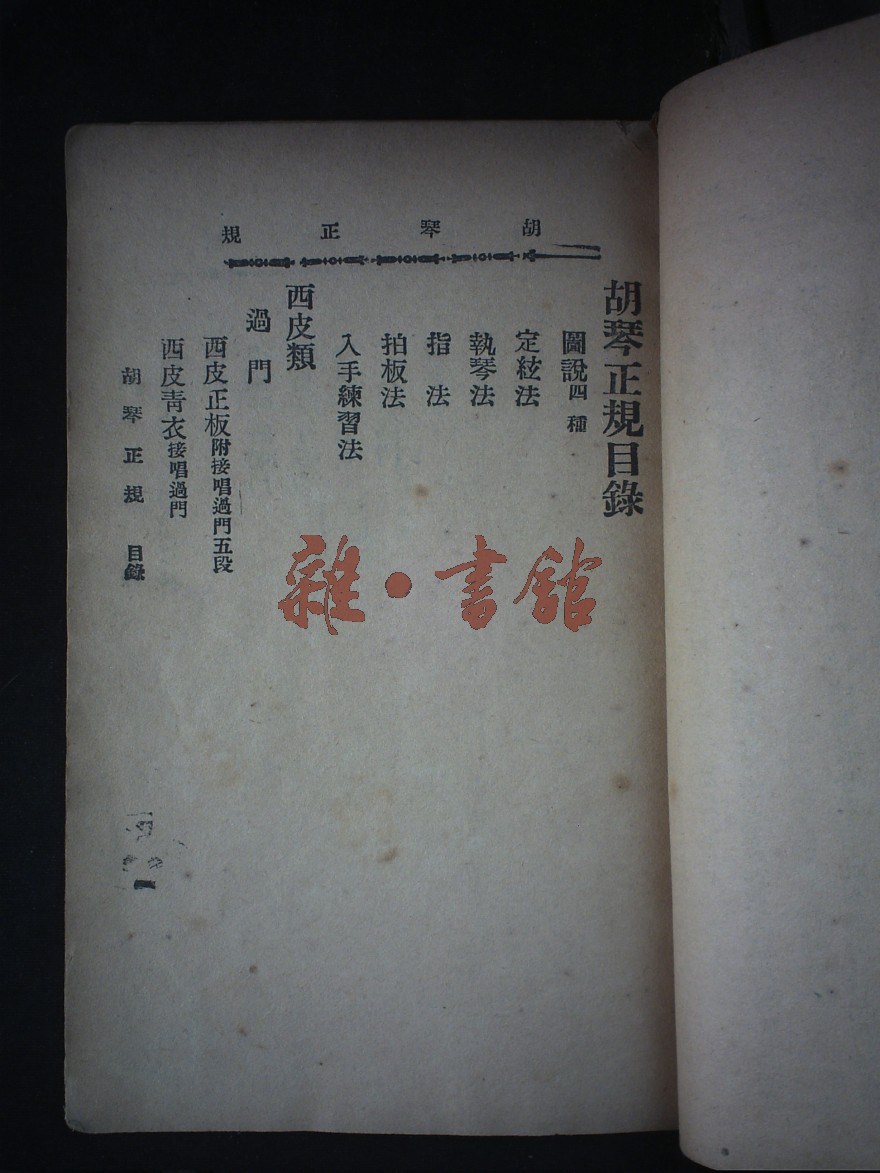 胡琴正規
胡琴正規目錄
圖說四種
定絃法
執琴法
指法
拍板法
入手練習法
西皮類
過門
西皮正板附接唱過門五段
西皮靑衣接唱過門
胡琴正規 目錄
一
雜·書館